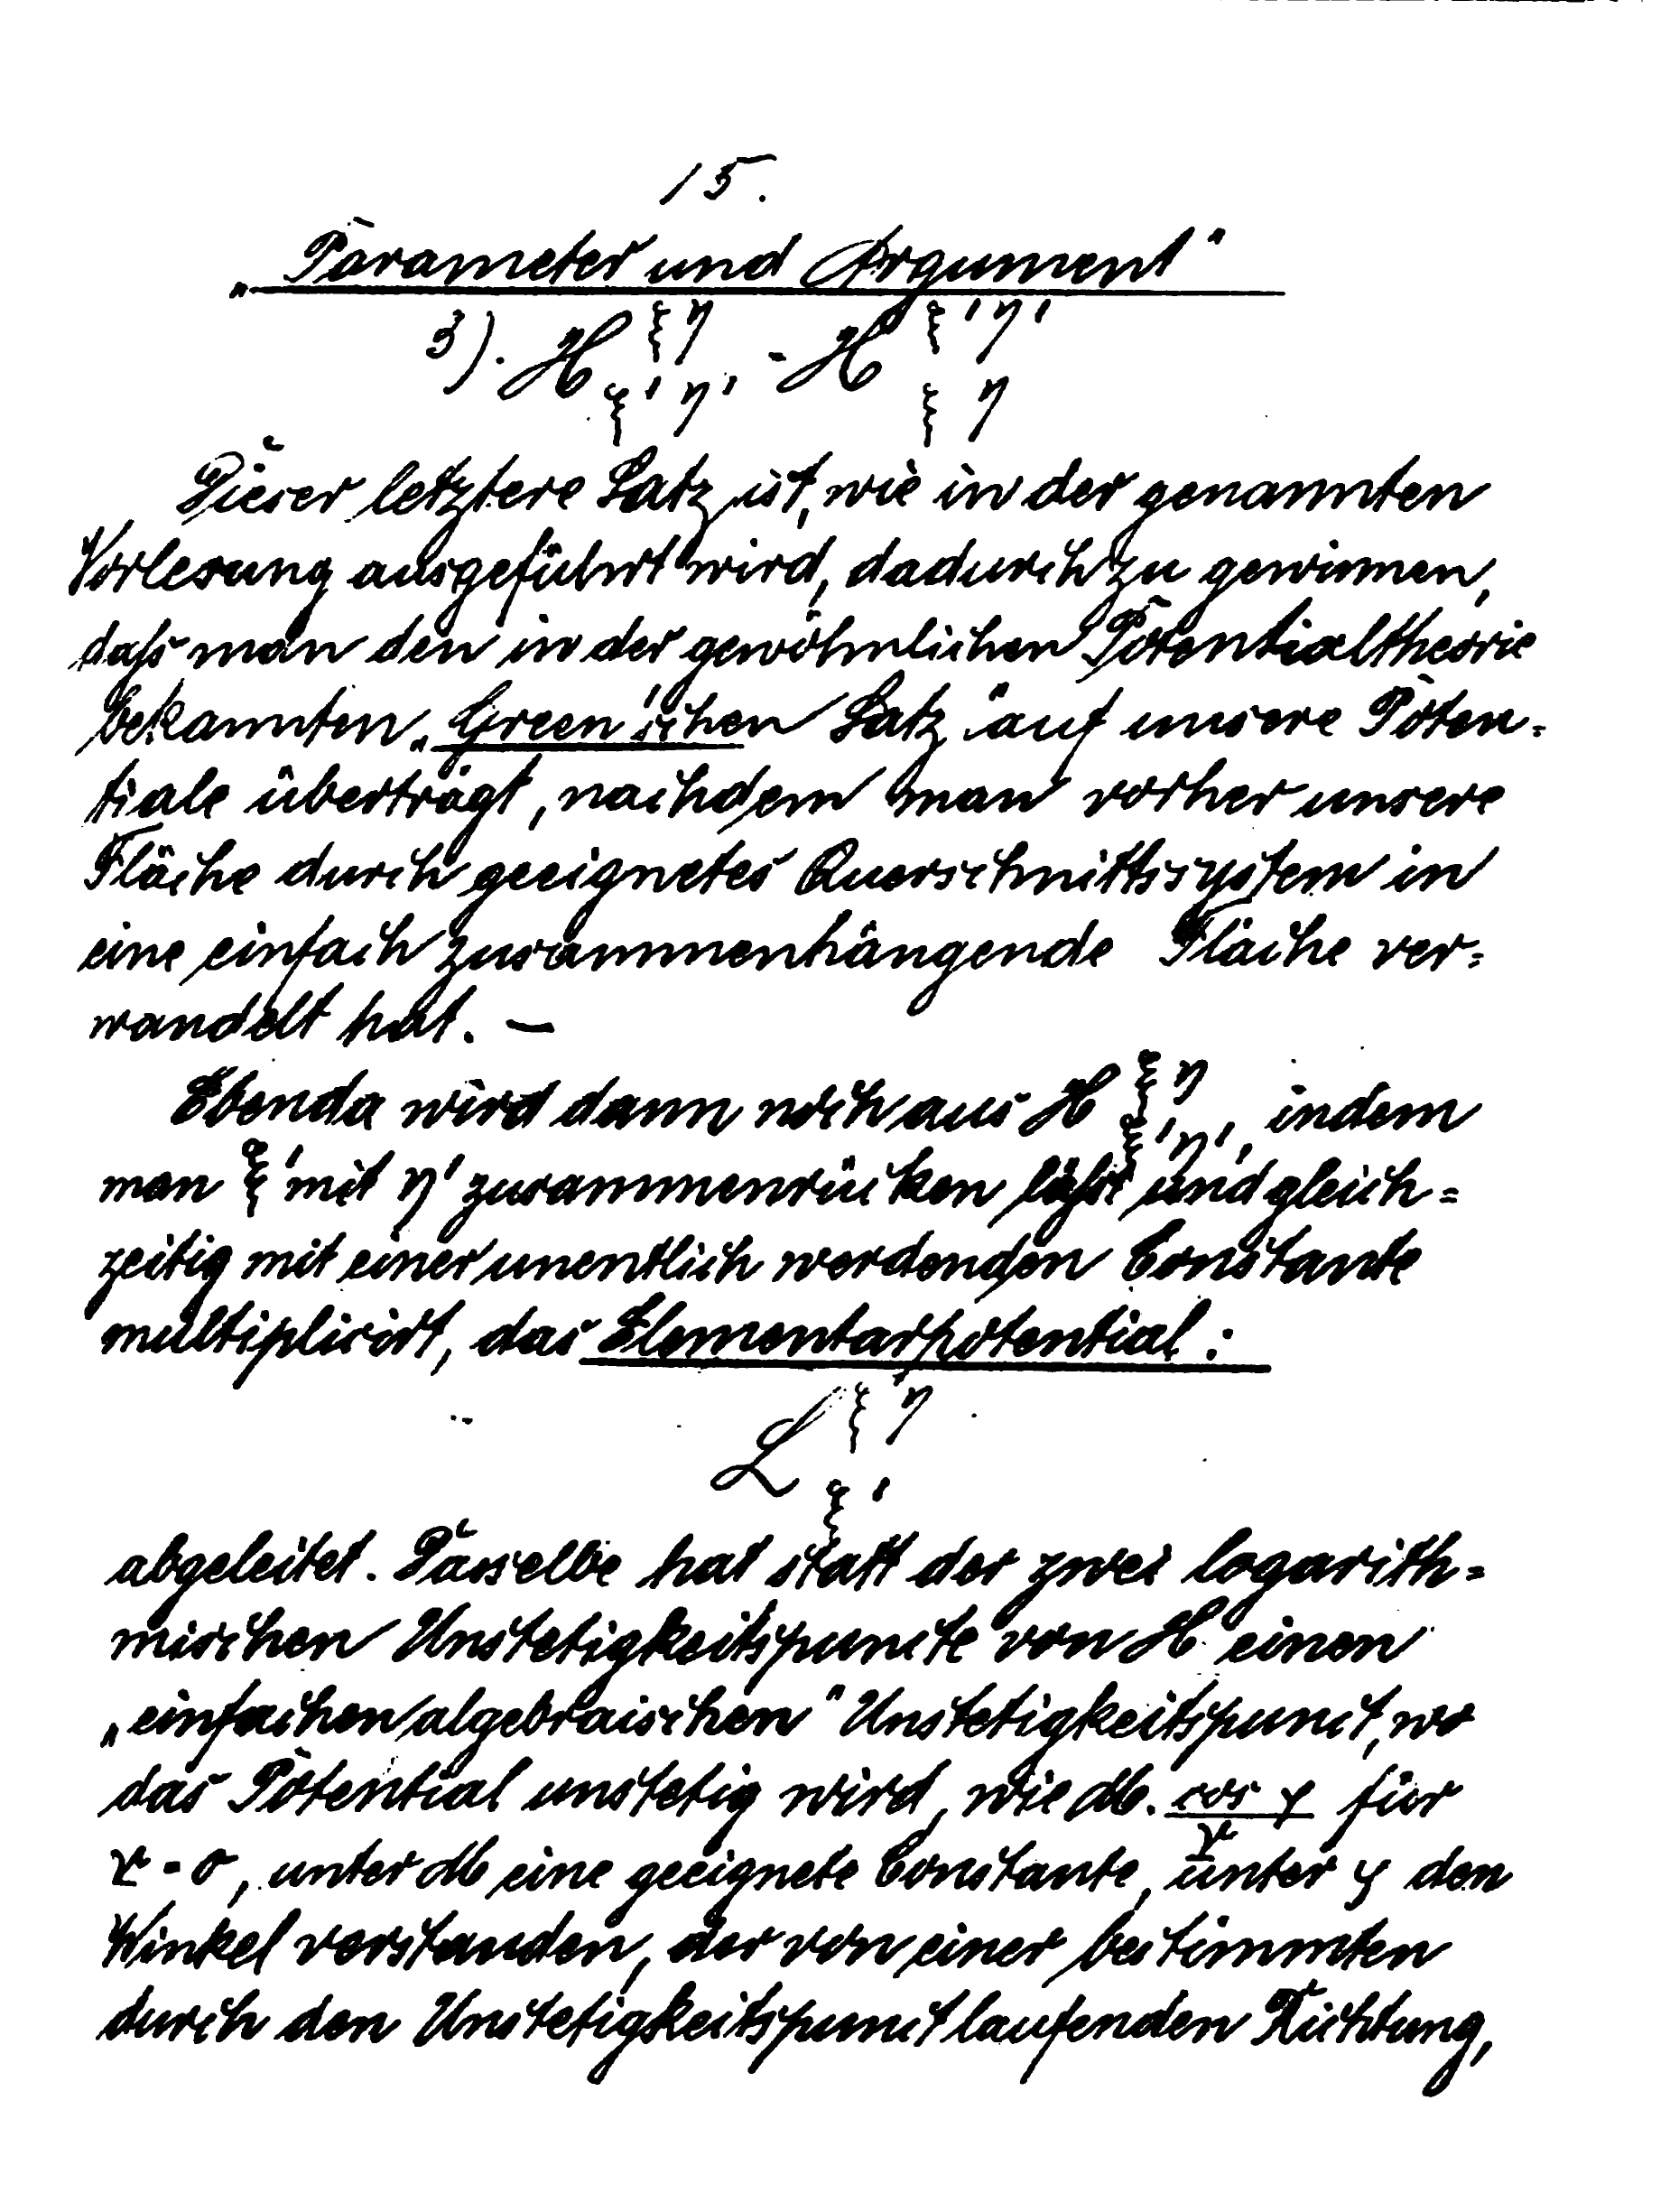 15.
„Parameter und Argument"
3). H ξη ξ'η' = H ξ'η' ξη
Dieser letztere Satz ist, wie in der genannten
Vorlesung ausgeführt wird, dadurch zu gewinnen,
daſs man den in der gewöhnlichen Potentialtheorie
bekannten „Green'schen Satz" auf unsere Poten=
tiale überträgt, nachdem man vorher unsere
Fläche durch geeignetes Querschnittssystem in
eine einfach zusammenhängende Fläche ver=
wandelt hat. —
Ebenda wird dann noch aus H ξη ξ'η', indem
man ξ' mit η' zusammenrücken läſst und gleich=
zeitig mit einer unentlich werdenden Constante
multiplicirt, das Elementarpotential:
L ξη ξ'
abgeleitet. Dasselbe hat statt der zwei logarith=
mischen Unstetigkeitspuncte von H einen
„einfachen algebraischen" Unstetigkeitspunct, wo
das Potential unstetig wird, wie M. cos φ / r für
r = 0, unter M eine geeignete Constante, unter φ den
Winkel verstanden, der von einer bestimmten
durch den Unstetigkeitspunct laufenden Richtung,